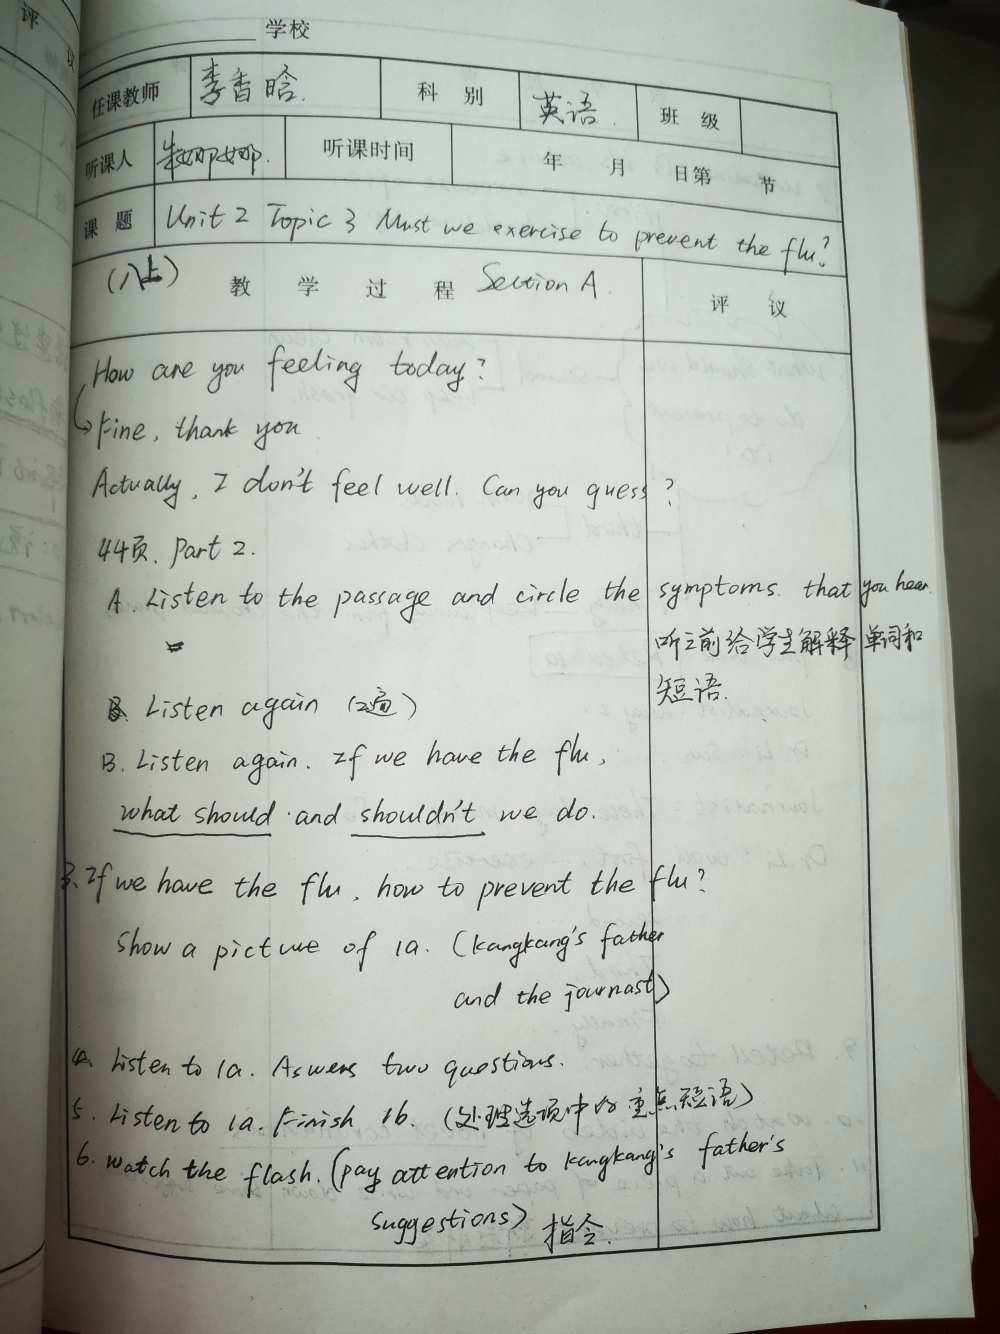 评 议
学校
任课教师 李香晗. 科 别 英语. 班 级
听课人 听课时间 年 月 日第 节
课 题 Unit 2 Topic 3 Must we exercise to prevent the flu?
(八上) 教 学 过 程 Section A. 评 议
How are you feeling today?
Fine, thank you.
Actually, I don't feel well. Can you guess?
44页. Part 2.
A. Listen to the passage and circle the symptoms. that you hear.
听之前给学生解释单词和
短语.
B. Listen again (2遍)
B. Listen again. If we have the flu,
what should and shouldn't we do.
3. If we have the flu, how to prevent the flu?
Show a picture of 1a. (Kangkang's father
and the journast)
4. Listen to 1a. Aswers two questions.
5. Listen to 1a. Finish 1b. (处理选项中的重点短语)
6. Watch the flash. (pay attention to Kangkang's father's
suggestions) 指令.